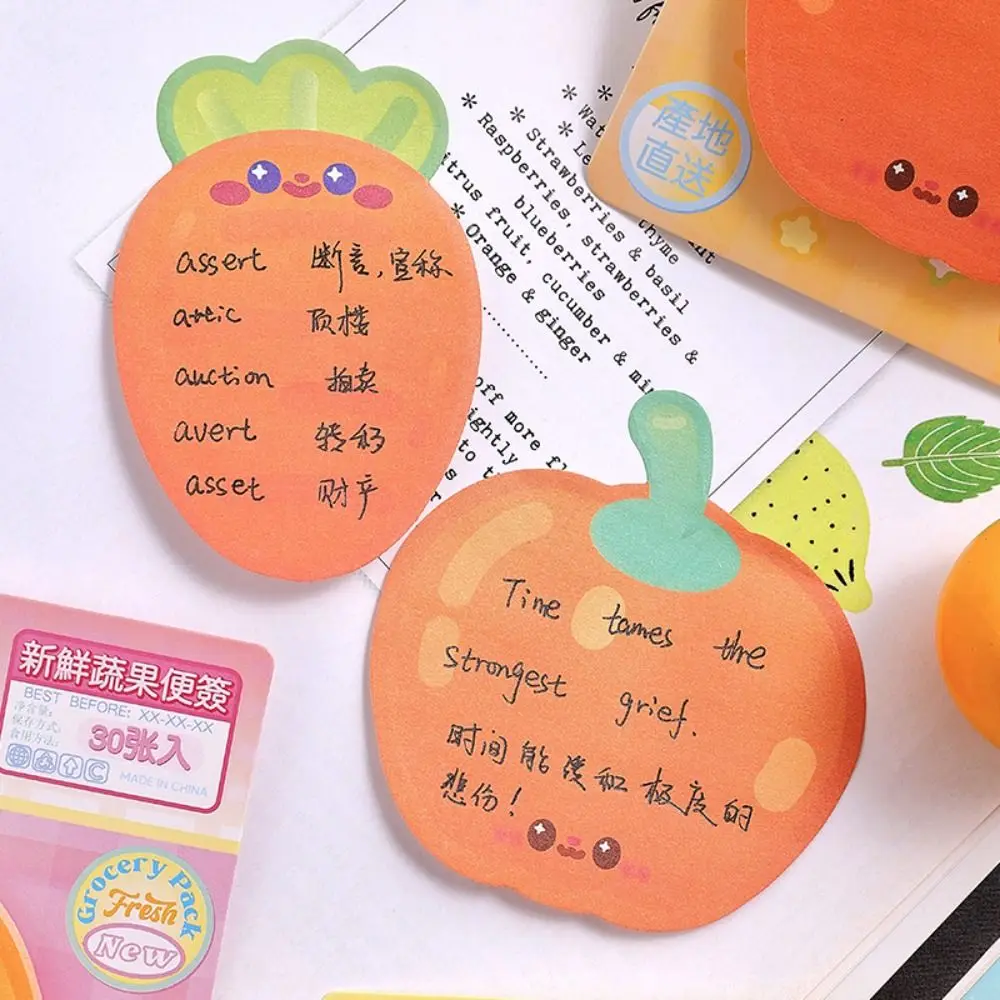 assert 断言,宣称
attic 顶楼
auction 拍卖
avert 转移
asset 财产
Time tames the
strongest grief.
时间能缓和极度的
悲伤!
產地
直送
* Raspberries, strawberries &
* Strawberries & basil
blueberries
thyme
citrus fruit, cucumber & mint
* Orange & ginger
off more
新鮮蔬果便簽
BEST BEFORE: XX-XX-XX
净含量:
保存方式:
食用方法:
30张入
MADE IN CHINA
Grocery Pack
Fresh
New